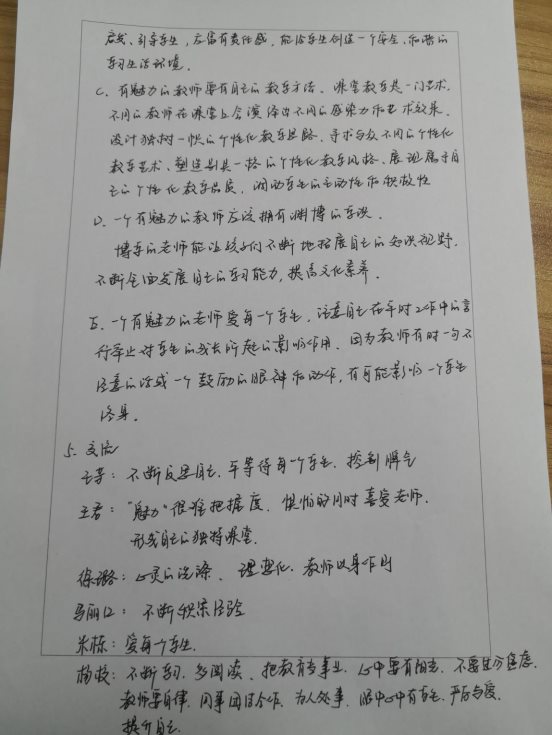 启发、引导学生，应富有责任感，能给学生创造一个安全、和谐的
学习生活环境。
C. 有魅力的教师要有自己的教学方法、课堂教学是一门艺术，
不同的教师在课堂上会演绎出不同的感染力和艺术效果。
设计独树一帜的个性化教学思路、寻求与众不同的个性化
教学艺术、塑造别具一格的个性化教学风格、展现属于自
己的个性化教学品质，调动学生的主动性和积极性
D. 一个有魅力的教师应该拥有渊博的学识。
博学的老师能让孩子们不断地拓展自己的知识视野，
不断全面发展自己的学习能力，提高文化素养。
E. 一个有魅力的老师爱每一个学生，注意自己在平时工作中的言
行举止对学生的成长所起的影响作用，因为教师有时一句不
注意的话或一个鼓励的眼神和动作，有可能影响一个学生
终身。
5. 交流
不断反思自己、平等待每一个学生、控制脾气
王君："魅力"很难把握度，惧怕的同时喜爱老师，
形成自己的独特课堂。
徐璐：心灵的洗涤、理变化、教师以身作则
马丽：不断积累经验
朱栋：爱每个学生。
杨校：不断学习、多阅读、把教育当事业、心中要有阳光、不要过分焦虑
教师要自律，同事团结合作、为人处事、眼中心中有学生、严厉与爱，
提升自己